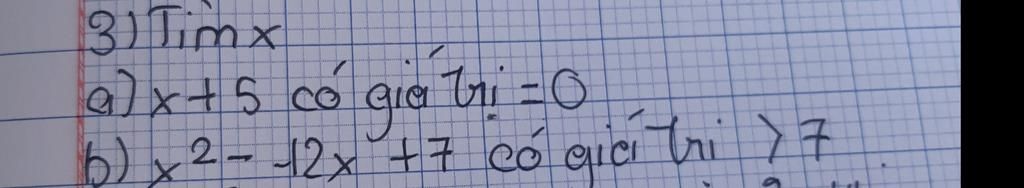 3) Tìm x
a) x + 5 có giá trị = 0
b) x² - 12x + 7 có giá trị > 7